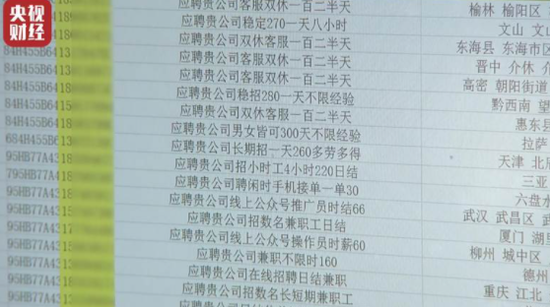 央视财经
应聘贵公司客服双休一百二半天 榆林 榆阳区
应聘贵公司稳定270一天八小时 文山 文山
84H455B6 应聘贵公司双休客服一百二半天 东海县 东海市区
84H455B641 应聘贵公司客服双休一百二半天 晋中 介休 介休
84H455B641 应聘贵公司客服双休一百二半天 高密 朝阳街道
84H455B641 应聘贵公司稳招280一天不限经验 黔西南 望
84H455B641 应聘贵公司双休客服一百二半天 惠东县
84H455B641 应聘贵公司男女皆可300天不限经验 拉萨
684H455B64 应聘贵公司长期招一天260多劳多得 天津 北
95HB77A43 应聘贵公司招小时工4小时220日结 三亚
795HB77A4 应聘贵公司聘闲时手机接单一单30 六盘水
95HB77A43 应聘贵公司线上公众号推广员时结66 武汉 武昌区 武
95HB77A43 应聘贵公司招数名兼职工日结 厦门 湖里
95HB77A43 应聘贵公司线上公众号操作员时薪60 柳州 城中区
95HB77A43 应聘贵公司兼职不限时160 德州
95HB77A43 应聘贵公司在线招聘日结兼职 重庆 江北
95HB77A43 应聘贵公司招数名长短期兼职工